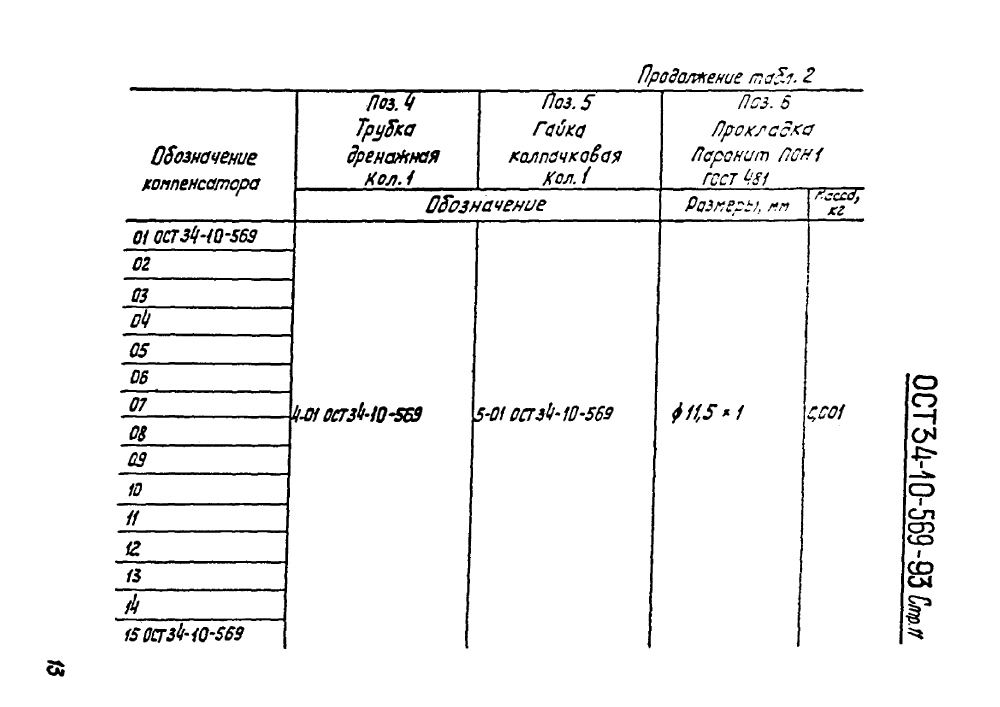 Продолжение табл. 2
Обозначение
компенсатора
Поз. 4
Трубка
дренажная
Кол. 1
Поз. 5
Гайка
колпачковая
Кол. 1
Поз. 6
Прокладка
Паронит ПОН1
ГОСТ 481
Обозначение
Размеры, мм
Масса,
кг
01 ОСТ 34-10-569
02
03
04
05
06
07
08
09
10
11
12
13
14
15 ОСТ 34-10-569
4-01 ОСТ 34-10-569
5-01 ОСТ 34-10-569
ϕ 11,5 × 1
0,001
ОСТ 34-10-569-93 Стр. 11
13